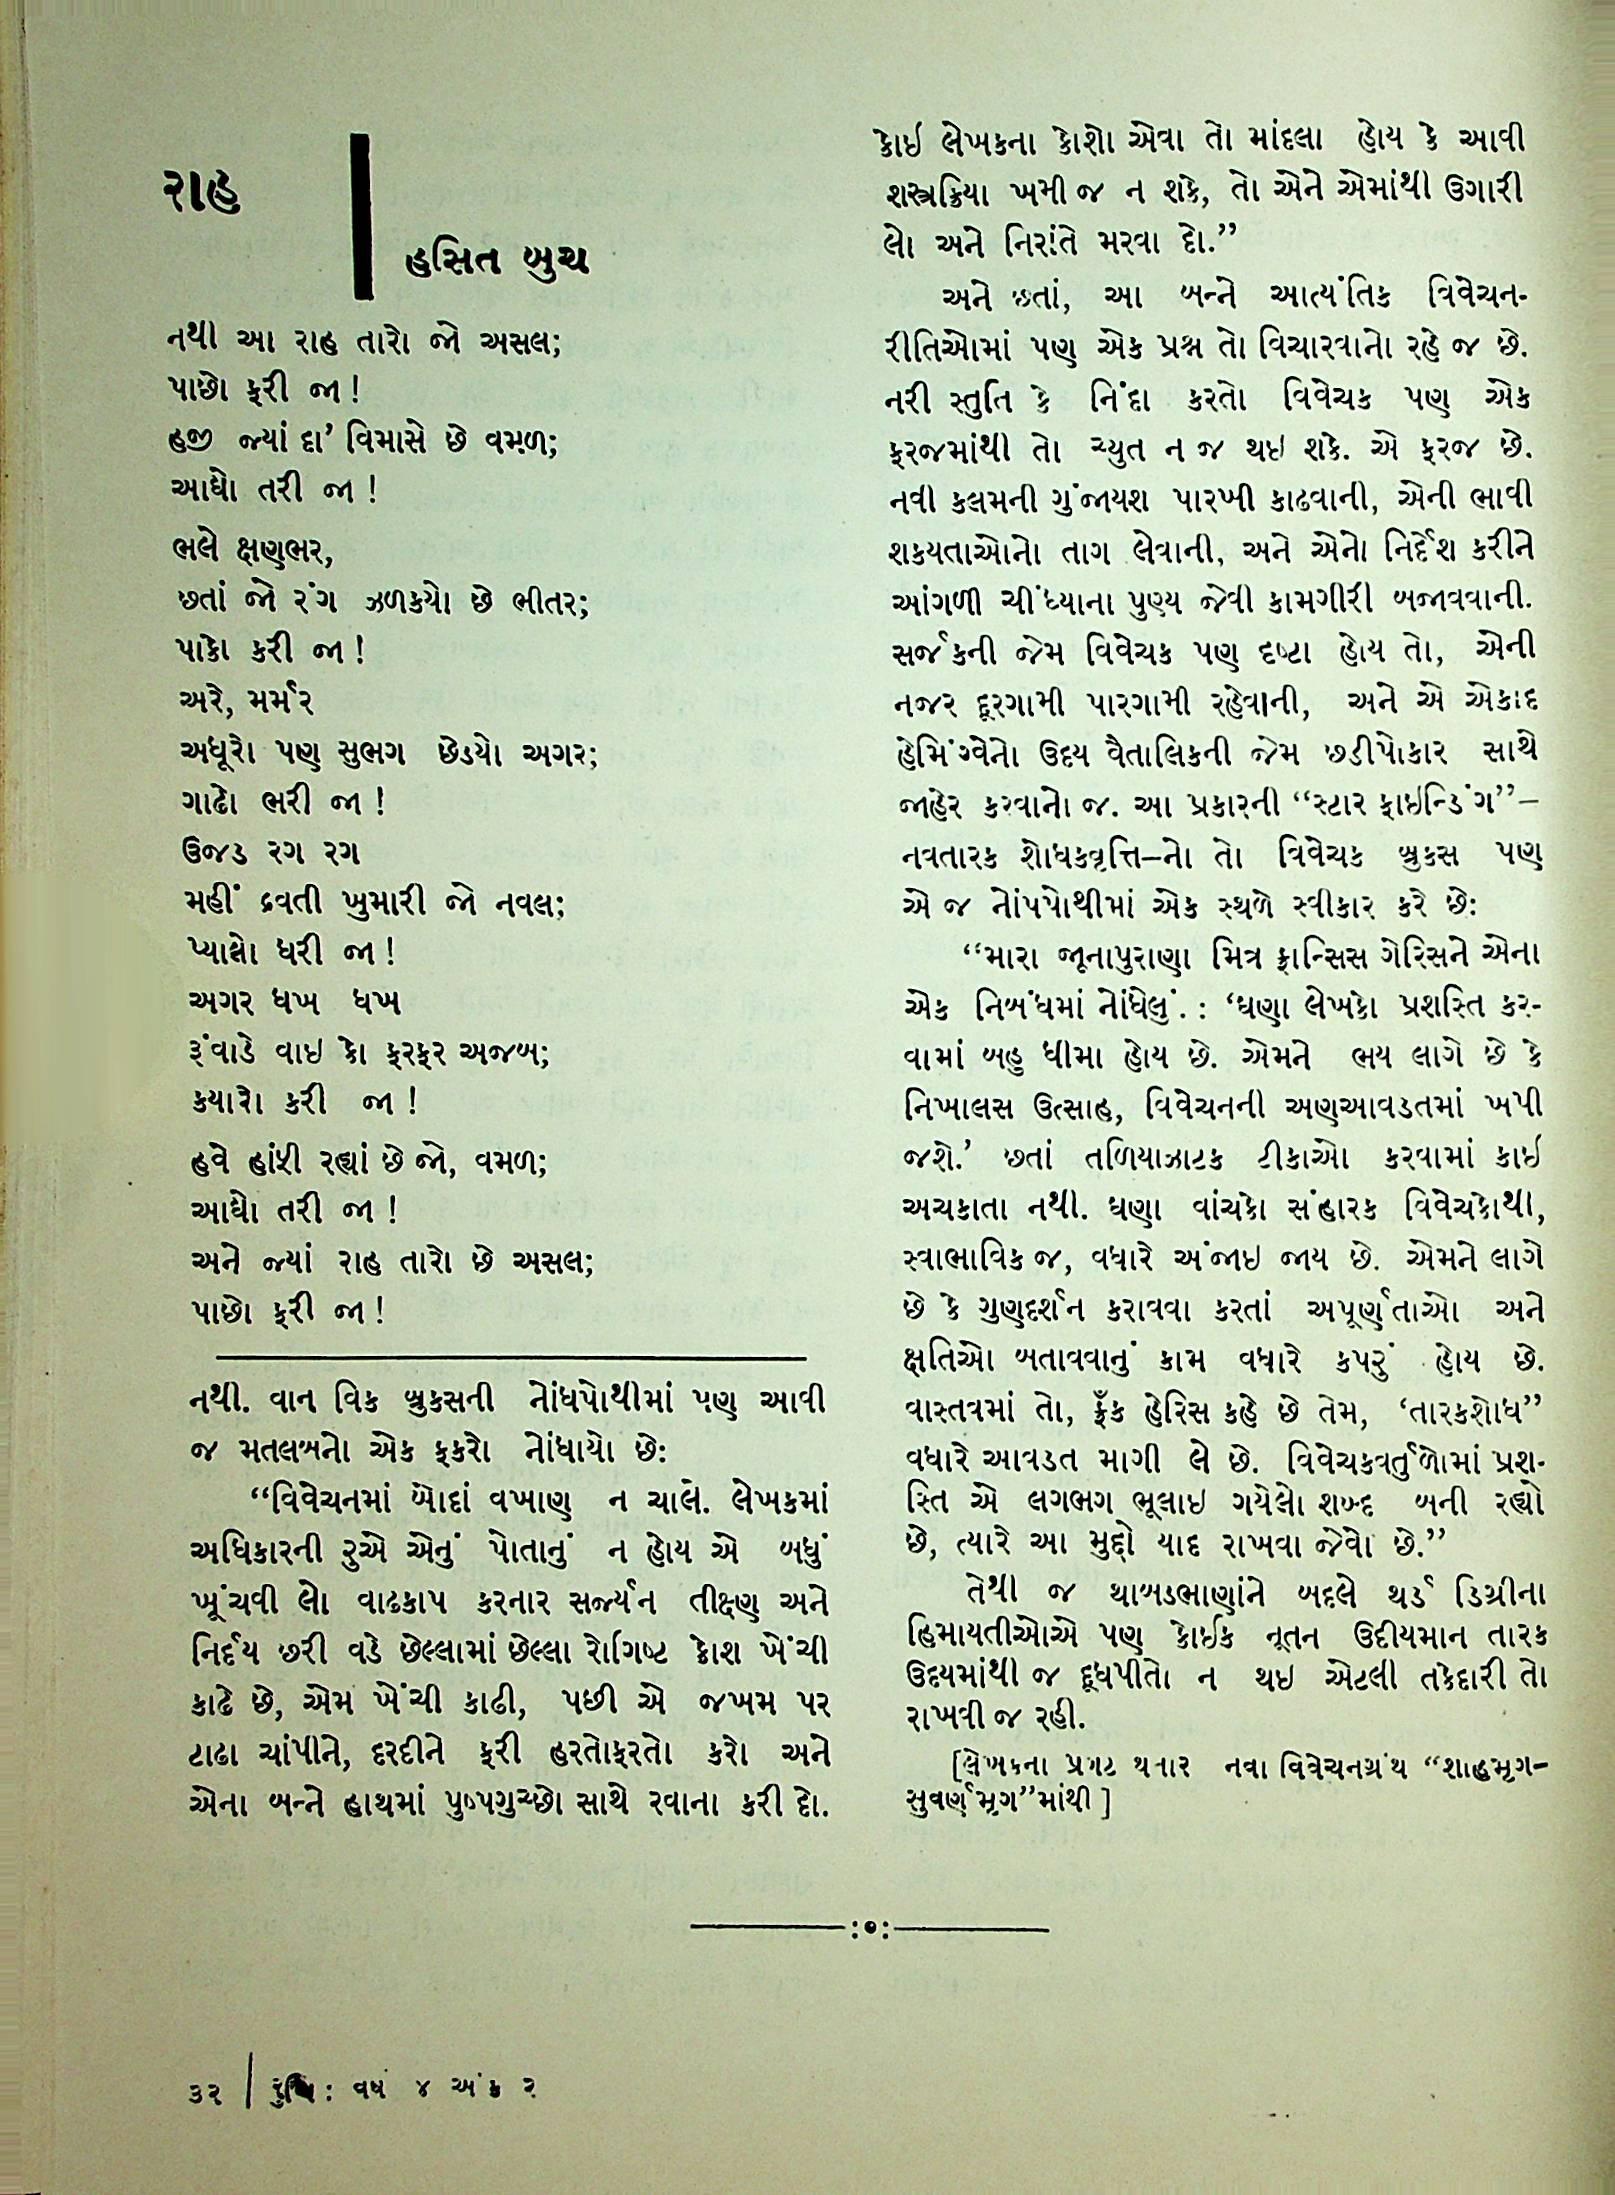 રાહ
હસિત બુચ
નથી આ રાહ તારો જો અસલ;
પાછો ફરી જા !
હજી જ્યાં દા' વિમાસે છે વમળ;
આઘો તરી જા !
ભલે ક્ષણભર,
છતાં જો રંગ ઝળક્યો છે ભીતર;
પાકો કરી જા !
અરે, મર્મર
અધૂરો પણ સુભગ છેડ્યો અગર;
ગાઢો ભરી જા !
ઉજડ રગ રગ
મહીં દ્રવતી ખુમારી જો નવલ;
પ્યાલો ધરી જા !
અગર ધખ ધખ
રૂંવાડે વાઇ કો ફરફર અજબ;
ક્યારો કરી જા !
હવે હાંફી રહ્યાં છે જો, વમળ;
આઘો તરી જા !
અને જ્યાં રાહ તારો છે અસલ;
પાછો ફરી જા !
નથી. વાન વિક બ્રુકસની નોંધપોથીમાં પણ આવી
જ મતલબનો એક ફકરો નોંધાયો છેઃ
“વિવેચનમાં બોદાં વખાણ ન ચાલે. લેખકમાં
અધિકારની રુએ એનું પોતાનું ન હોય એ બધું
ખૂંચવી લો વાઢકાપ કરનાર સર્જ્યન તીક્ષ્ણ અને
નિર્દય છરી વડે છેલ્લામાં છેલ્લા રોગિષ્ટ કોશ ખેંચી
કાઢે છે, એમ ખેંચી કાઢી, પછી એ જખમ પર
ટાઢા ચાંપીને, દરદીને ફરી હરતોફરતો કરો અને
એના બન્ને હાથમાં પુષ્પગુચ્છો સાથે રવાના કરી દો.
કોઇ લેખકના કોશો એવા તો માંદલા હોય કે આવી
શસ્ત્રક્રિયા ખમી જ ન શકે, તો એને એમાંથી ઉગારી
લો અને નિરાંતે મરવા દો.”
અને છતાં, આ બન્ને આત્યંતિક વિવેચન-
રીતિઓમાં પણ એક પ્રશ્ન તો વિચારવાનો રહે જ છે.
નરી સ્તુતિ કે નિંદા કરતો વિવેચક પણ એક
ફરજમાંથી તો ચ્યુત ન જ થઇ શકે. એ ફરજ છે.
નવી કલમની ગુંજાયશ પારખી કાઢવાની, એની ભાવી
શક્યતાઓનો તાગ લેવાની, અને એનો નિર્દેશ કરીને
આંગળી ચીંધ્યાના પુણ્ય જેવી કામગીરી બજાવવાની.
સર્જકની જેમ વિવેચક પણ દૃષ્ટા હોય તો, એની
નજર દૂરગામી પારગામી રહેવાની, અને એ એકાદ
હેમિંગ્વેનો ઉદય વૈતાલિકની જેમ છડીપોકાર સાથે
જાહેર કરવાનો જ. આ પ્રકારની “સ્ટાર ફાઇન્ડિંગ”–
નવતારક શોધકવૃત્તિ–નો તો વિવેચક બ્રુકસ પણ
એ જ નોંધપોથીમાં એક સ્થળે સ્વીકાર કરે છેઃ
“મારા જૂનાપુરાણા મિત્ર ફ્રાન્સિસ ગેરિસને એના
એક નિબંધમાં નોંધેલું. : ‘ઘણા લેખકો પ્રશસ્તિ કર-
વામાં બહુ ધીમા હોય છે. એમને ભય લાગે છે કે
નિખાલસ ઉત્સાહ, વિવેચનની અણઆવડતમાં ખપી
જશે.’ છતાં તળિયાઝાટક ટીકાઓ કરવામાં કોઇ
અચકાતા નથી. ઘણા વાંચકો સંહારક વિવેચકોથી,
સ્વાભાવિક જ, વધારે અંજાઇ જાય છે. એમને લાગે
છે કે ગુણદર્શન કરાવવા કરતાં અપૂર્ણતાઓ અને
ક્ષતિઓ બતાવવાનું કામ વધારે કપરું હોય છે.
વાસ્તવમાં તો, ફ્રેંક હેરિસ કહે છે તેમ, ‘તારકશોધ”
વધારે આવડત માગી લે છે. વિવેચકવર્તુળોમાં પ્રશ-
સ્તિ એ લગભગ ભૂલાઇ ગયેલો શબ્દ બની રહ્યો
છે, ત્યારે આ મુદ્દો યાદ રાખવા જેવો છે.”
તેથી જ થાબડભાણાંને બદલે થર્ડ ડિગ્રીના
હિમાયતીઓએ પણ કોઈક નૂતન ઉદીયમાન તારક
ઉદયમાંથી જ દૂધપીતો ન થઇ એટલી તકેદારી તો
રાખવી જ રહી.
[લેખકના પ્રગટ થનાર નવા વિવેચનગ્રંથ “શાહમૃગ–
સુવર્ણમૃગ”માંથી ]
૩૨ | રુચિ : વર્ષ ૪ અંક ૨